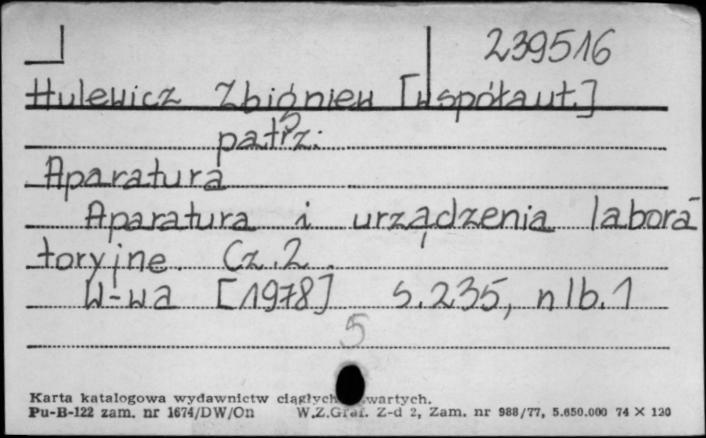 239516
Hulewicz Zbigniew [współaut.]
patrz:
Aparatura
Aparatura i urządzenia labora-
toryjne. Cz. 2.
W-wa [1978] s. 235, nlb. 1
5
Karta katalogowa wydawnictw ciągłych
Pu-B-122 zam. nr 1674/DW/On W.Z.Graf. Z-d 2, Zam. nr 988/77, 5.650.000 74 × 120